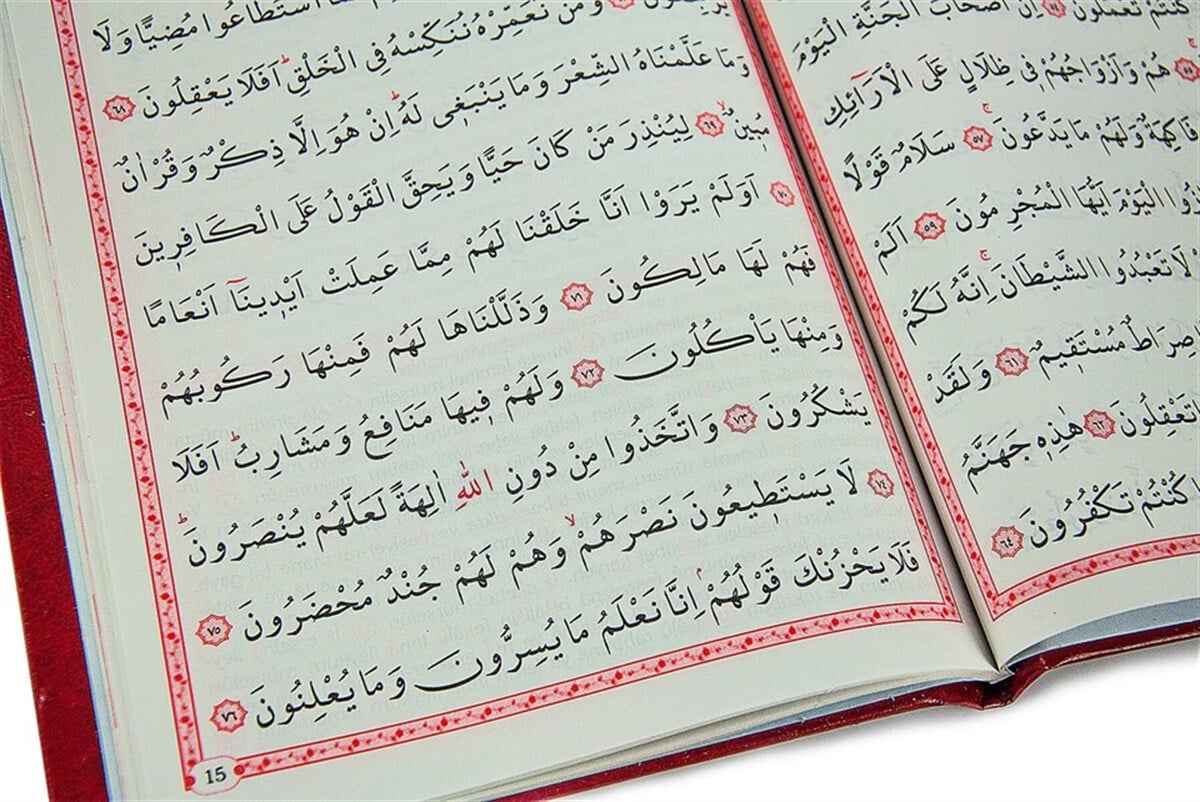 كُنْتُمْ تَعْمَلُونَ ﴿٥٤﴾ اِنَّ اَصْحَابَ الْجَنَّةِ الْيَوْمَ
﴿٥٥﴾ هُمْ وَاَزْوَاجُهُمْ فٖى ظِلَالٍ عَلَى الْاَرَٓائِكِ
فَاكِهَةٌ وَلَهُمْ مَا يَدَّعُونَۚ ﴿٥٧﴾ سَلَامٌ قَوْلًا
الْيَوْمَ اَيُّهَا الْمُجْرِمُونَ ﴿٥٩﴾ اَلَمْ
لَا تَعْبُدُوا الشَّيْطَانَۚ اِنَّهُ لَكُمْ
صِرَاطٌ مُسْتَقٖيمٌ ﴿٦١﴾ وَلَقَدْ
تَعْقِلُونَ ﴿٦٢﴾ هٰذِهٖ جَهَنَّمُ
كُنْتُمْ تَكْفُرُونَ ﴿٦٤﴾
اسْتَطَاعُوا مُضِيًّا وَلَا
وَمَنْ نُعَمِّرْهُ نُنَكِّسْهُ فِى الْخَلْقِؕ اَفَلَا يَعْقِلُونَ ﴿٦٨﴾
وَمَا عَلَّمْنَاهُ الشِّعْرَ وَمَا يَنْبَغٖى لَهُؕ اِنْ هُوَ اِلَّا ذِكْرٌ وَقُرْاٰنٌ
مُبٖينٌۙ ﴿٦٩﴾ لِيُنْذِرَ مَنْ كَانَ حَيًّا وَيَحِقَّ الْقَوْلُ عَلَى الْكَافِرٖينَ
﴿٧٠﴾ اَوَلَمْ يَرَوْا اَنَّا خَلَقْنَا لَهُمْ مِمَّا عَمِلَتْ اَيْدٖينَٓا اَنْعَامًا
فَهُمْ لَهَا مَالِكُونَ ﴿٧١﴾ وَذَلَّلْنَاهَا لَهُمْ فَمِنْهَا رَكُوبُهُمْ
وَمِنْهَا يَاْكُلُونَ ﴿٧٢﴾ وَلَهُمْ فٖيهَا مَنَافِعُ وَمَشَارِبُؕ اَفَلَا
يَشْكُرُونَ ﴿٧٣﴾ وَاتَّخَذُوا مِنْ دُونِ اللّٰهِ اٰلِهَةً لَعَلَّهُمْ يُنْصَرُونَؕ
﴿٧٤﴾ لَا يَسْتَطٖيعُونَ نَصْرَهُمْۙ وَهُمْ لَهُمْ جُنْدٌ مُحْضَرُونَ ﴿٧٥﴾
فَلَا يَحْزُنْكَ قَوْلُهُمْۘ اِنَّا نَعْلَمُ مَا يُسِرُّونَ وَمَا يُعْلِنُونَ ﴿٧٦﴾
15